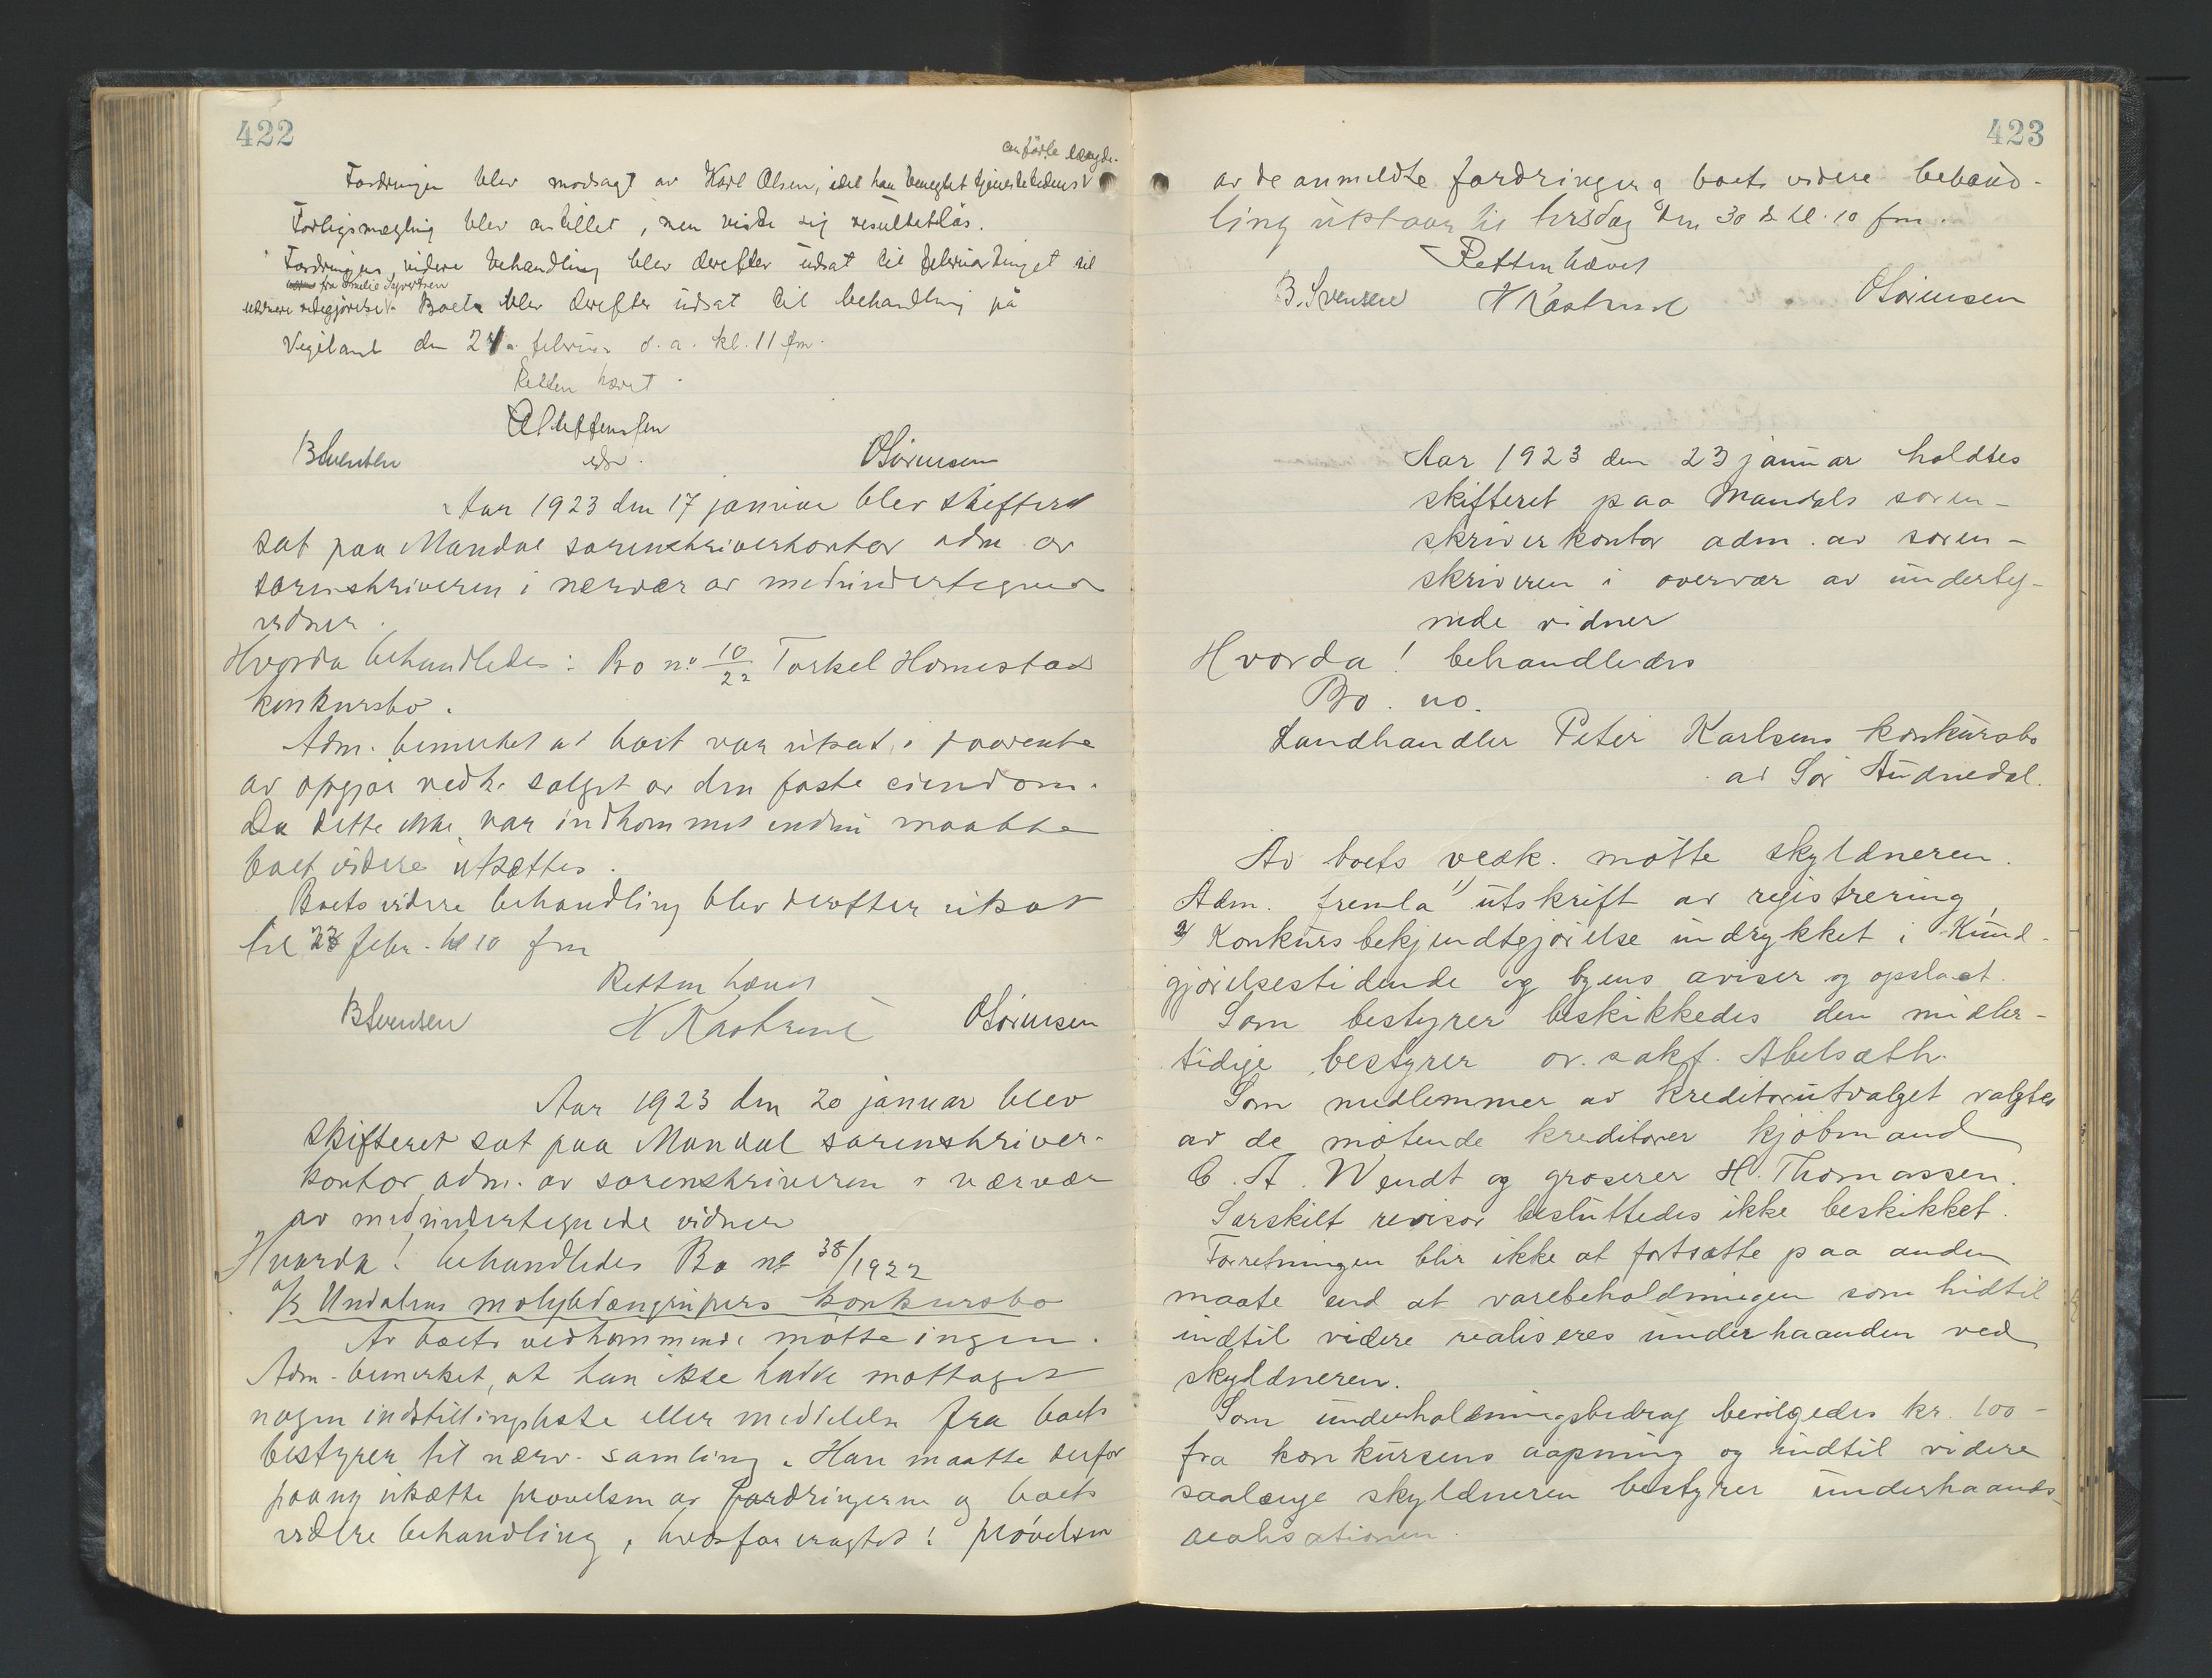 422
anførte længde.
Fordringen blev modsagt av Karl Olsen, idet han benegtet tjenestetidens
Forligsmægling blev anstillet, men viste sig resultatløs.
Fordringens videre behandling blev derefter udsat til februartinget til
fra Emilie Syvertsen
nærmere redegjørelse. Boets blev derefter udsat til behandling på
Vigeland den 21a februar d. a. kl. 11 fm.
Retten hævet.
BSvendsen OSørensen
Aar 1923 den 17 januar blev skifteret
sat paa Mandal sorenskriverkontor adm av
sorenskriveren i nærvær av medundertegnede
vidner.
Hvorda behandledes: Bo no 10/22 Torkel Homestad
konkursbo.
Adm. bemerket at boet var utsat i paavente
av opgjør vedk. salget av den faste eiendom.
Da dette ikke var indkommet endnu maatte
boet videre utsættes.
Boets videre behandling blev derefter utsat
til 23 febr. kl 10 fm
Retten hævet
BSvendsen H Kastrud OSørensen
Aar 1923 den 20 januar blev
skifteret sat paa Mandal sorenskriver-
kontor adm. av sorenskriveren i nærvær
av medundertegnede vidner
Hvorda! behandledes Bo no 38/1922
a/s Undalens molybdængrupers konkursbo
Av boets vedkommende møtte ingen.
Adm. bemerket, at han ikke hadde mottaget
nogen indstillingsliste eller meddelelse fra boets
bestyrer til nærv. samling. Han maatte derfor
paany utsætte prøvelsen av fordringerne og boets
videre behandling, hvorfor eragtet: prøvelsen
423
av de anmeldte fordringer og boets videre behand-
ling utstaar til tirsdag den 30 ds kl. 10 fm.
Retten hævet
B. Svensen H Kastrud OSørensen
Aar 1923 den 23 januar holdtes
skifteret paa Mandals soren-
skriverkontor adm. av soren-
skriveren i overvær av underteg-
nede vidner
Hvorda! behandledes
Bo. no.
Landhandler Peter Karlsens konkursbo
av Sør Audnedal.
Av boets vedk. møtte skyldneren.
Adm. fremla 1) utskrift av registrering,
2) Konkursbekjendtgjørelse indrykket i Kund-
gjørelsestidende og byens aviser og opslaat.
Som bestyrer beskikkedes den midler-
tidige bestyrer ov. sakf. Abelsæth.
Som medlemmer av kreditorutvalget valgtes
av de møtende kreditorer kjøbmand
C. A. Wendt og groserer H. Thomassen.
Særskilt revisor besluttedes ikke beskikket.
Forretningen blir ikke at fortsætte paa anden
maate end at varebeholdningen som hidtil
indtil videre realiseres underhaanden ved
skyldneren.
Som underholdningsbidrag bevilgedes kr. 100 -
fra konkursens aapning og indtil videre
saalænge skyldneren bestyrer underhaands-
realisationen.